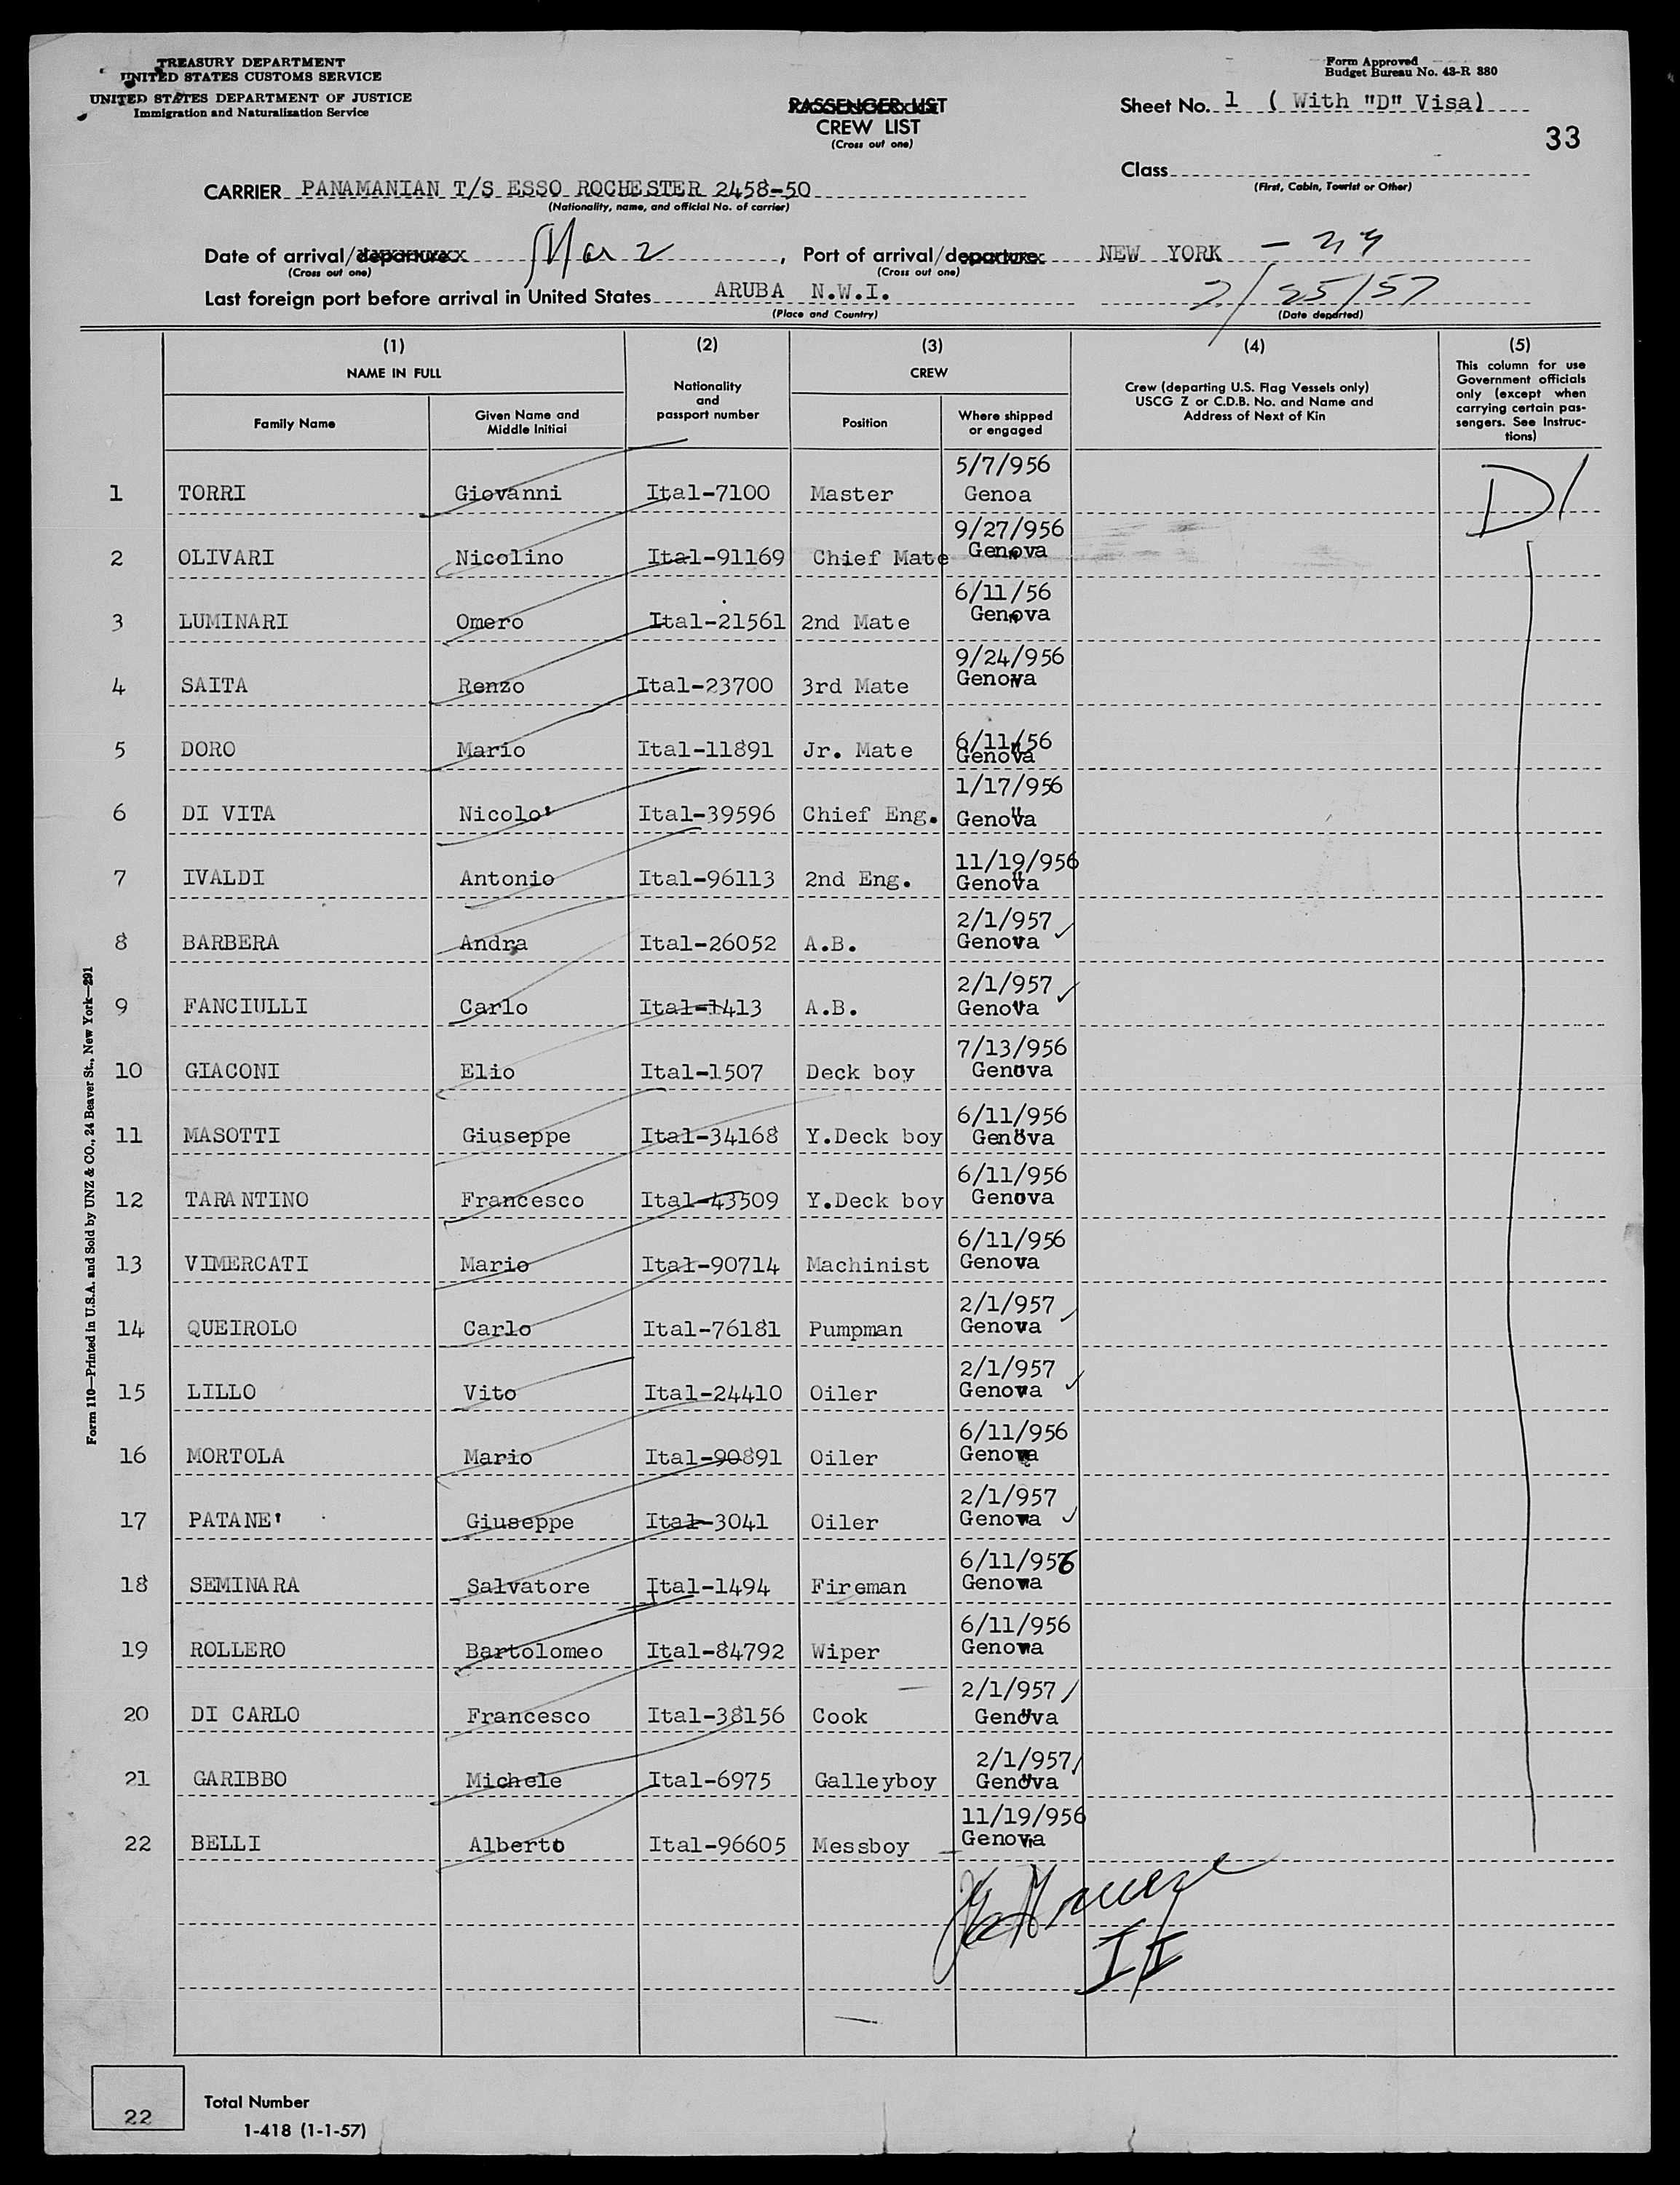 TREASURY DEPARTMENT
UNITED STATES CUSTOMS SERVICE
UNITED STATES DEPARTMENT OF JUSTICE
Immigration and Naturalization Service
Form Approved
Budget Bureau No. 43-R 380
PASSENGER LIST
CREW LIST
(Cross out one)
Sheet No. 1 ( With "D" Visa)
33
Class
(First, Cabin, Tourist or Other)
CARRIER PANAMANIAN T/S ESSO ROCHESTER 2458-50
(Nationality, name, and official No. of carrier)
Date of arrival/departure Mar 2 , Port of arrival/departure NEW YORK
(Cross out one) (Cross out one)
Last foreign port before arrival in United States ARUBA N.W.I. 2/25/57
(Place and Country) (Date departed)
(1) (2) (3) (4) (5)
NAME IN FULL
Family Name
Given Name and Middle Initial
Nationality and passport number
CREW
Position
Where shipped or engaged
Crew (departing U.S. Flag Vessels only) USCG Z or C.D.B. No. and Name and Address of Next of Kin
This column for use Government officials only (except when carrying certain passengers. See Instructions)
1 TORRI Giovanni Ital-7100 Master 5/7/956 Genoa D1
2 OLIVARI Nicolino Ital-91169 Chief Mate 9/27/956 Genova
3 LUMINARI Omero Ital-21561 2nd Mate 6/11/56 Genova
4 SAITA Renzo Ital-23700 3rd Mate 9/24/956 Genova
5 DORO Mario Ital-11891 Jr. Mate 6/11/56 Genova
6 DI VITA Nicolo' Ital-39596 Chief Eng. 1/17/956 Genova
7 IVALDI Antonio Ital-96113 2nd Eng. 11/19/956 Genova
8 BARBERA Andra Ital-26052 A.B. 2/1/957 Genova
9 FANCIULLI Carlo Ital-1413 A.B. 2/1/957 Genova
10 GIACONI Elio Ital-1507 Deck boy 7/13/956 Genova
11 MASOTTI Giuseppe Ital-34168 Y.Deck boy 6/11/956 Genova
12 TARANTINO Francesco Ital-43509 Y.Deck boy 6/11/956 Genova
13 VIMERCATI Mario Ital-90714 Machinist 6/11/956 Genova
14 QUEIROLO Carlo Ital-76181 Pumpman 2/1/957 Genova
15 LILLO Vito Ital-24410 Oiler 2/1/957 Genova
16 MORTOLA Mario Ital-90891 Oiler 6/11/956 Genova
17 PATANE' Giuseppe Ital-3041 Oiler 2/1/957 Genova
18 SEMINARA Salvatore Ital-1494 Fireman 6/11/956 Genova
19 ROLLERO Bartolomeo Ital-84792 Wiper 6/11/956 Genova
20 DI CARLO Francesco Ital-38156 Cook 2/1/957 Genova
21 GARIBBO Michele Ital-6975 Galleyboy 2/1/957 Genova
22 BELLI Alberto Ital-96605 Messboy 11/19/956 Genova
II
22 Total Number
1-418 (1-1-57)
Form 110—Printed in U.S.A. and Sold by UNZ & CO., 24 Beaver St., New York—291